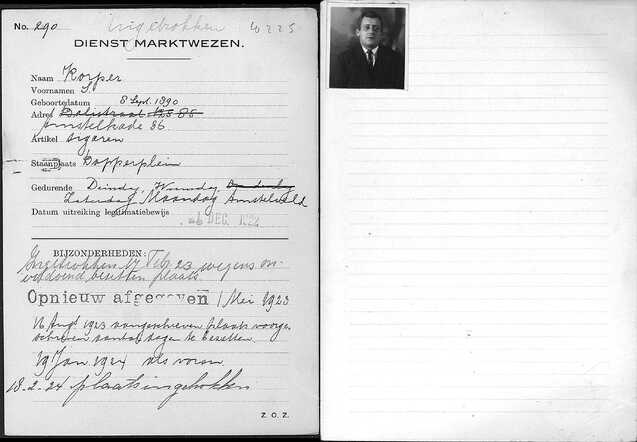 No. 290 Ingetrokken 40225
DIENST MARKTWEZEN.
Naam Korper
Voornamen S.
Geboortedatum 8 Sept. 1890
Adres
Amstelkade 86.
Artikel sigaren
Staanplaats Dapperplein
Gedurende Dinsdag, Woensdag, Donderdag
Zaterdag Maandag Amstelveld
Datum uitreiking legitimatiebewijs
DEC. 1922
BIJZONDERHEDEN:
Ingetrokken 17 Feb 23 wegens on-
voldoend bezetten plaats.
Opnieuw afgegeven 1 Mei 1923
16 Augt 1923 aangeschreven plaats voorge-
schreven aantal dagen te bezetten.
19 Jan 1924 als voren
18-2-24 plaats ingetrokken
Z. O. Z.